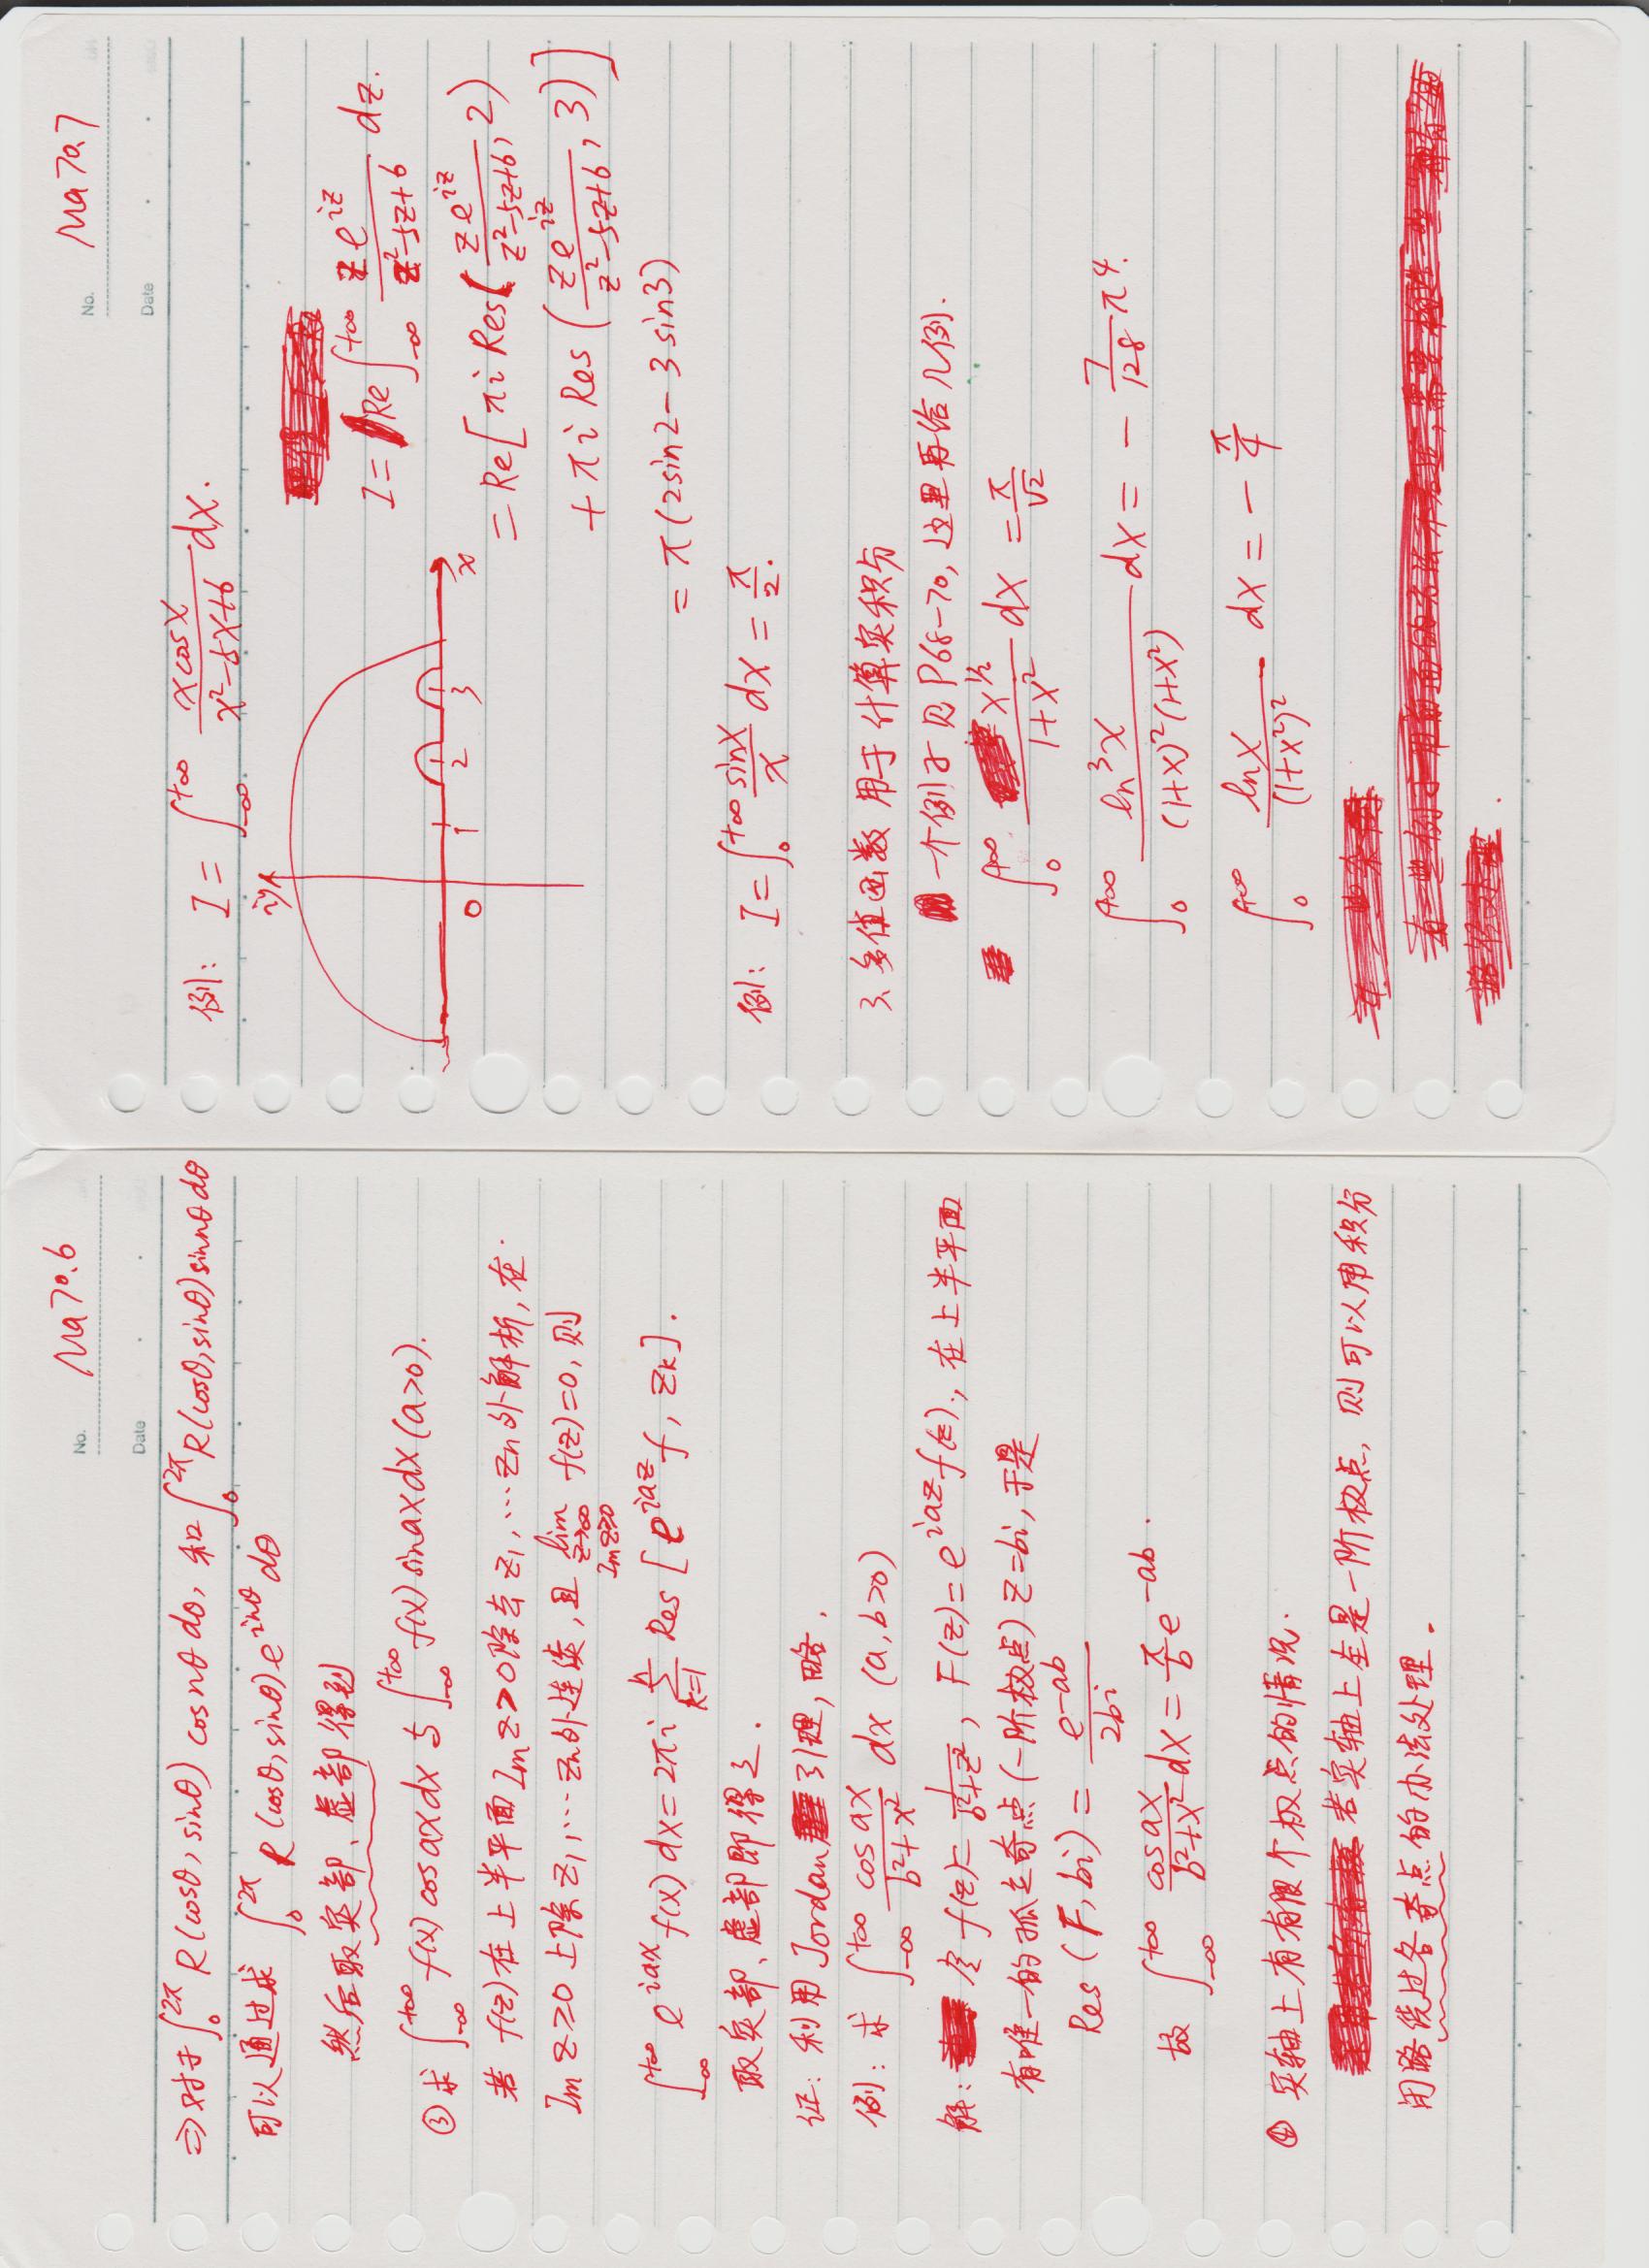 No. Ma70.6
Date
⇒对于∫₀^{2π} R(cosθ, sinθ) cosnθ dθ, 和∫₀^{2π} R(cosθ, sinθ) sinnθ dθ
可以通过求 ∫₀^{2π} R(cosθ, sinθ) e^{inθ} dθ
然后取实部、虚部得到
③求 ∫_{-∞}^{+∞} f(x) cosax dx 与 ∫_{-∞}^{+∞} f(x) sinax dx (a>0).
若 f(z)在上半平面 Im z>0除去 z₁, …zn外解析, 在
Im z≥0 上除 z₁, …zn外连续, 且 lim_{z→∞, Im z≥0} f(z)=0, 则
∫_{-∞}^{+∞} e^{iax} f(x) dx = 2πi Σ_{k=1}^{n} Res [e^{iaz} f, z_k].
取实部、虚部即得之.
证: 利用 Jordan 引理, 略.
例: 求 ∫_{-∞}^{+∞} cos ax/(b²+x²) dx (a, b>0)
解: 令 f(z)= 1/(b²+z²), F(z)= e^{iaz} f(z), 在上半平面
有唯一的孤立奇点(一阶极点) z=bi, 于是
Res (F, bi) = e^{-ab}/2bi
故 ∫_{-∞}^{+∞} cos ax/(b²+x²) dx = π/b e^{-ab}.
④ 实轴上有有限个极点的情况.
若实轴上全是一阶极点, 则可以用积分
闭路绕过各奇点的办法处理.
No. Ma70.7
Date
例: I = ∫_{-∞}^{+∞} x cosx/(x²-5x+6) dx.
iy
0 1 2 3 x
I = Re ∫_{-∞}^{+∞} z e^{iz}/(z²-5z+6) dz.
= Re[πi Res(z e^{iz}/(z²-5z+6), 2)
+ πi Res (z e^{iz}/(z²-5z+6), 3)]
= π(2sin2 - 3sin3)
例: I = ∫₀^{+∞} sinx/x dx = π/2.
3、多值函数用于计算实积分
一个例子见P68-70, 这里再给几例.
∫₀^{+∞} x^{1/2}/(1+x²) dx = π/√2
∫₀^{+∞} ln³x/((1+x)²(1+x²)) dx = - 7/128 π⁴.
∫₀^{+∞} lnx/(1+x²)² dx = - π/4